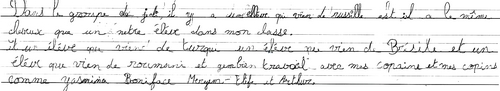 Dans le groupe de foot il y a un élève qui vien de russille est il a le même
cheveux que un autre élève dans mon classe.
il un élève que vien de turque un élève que vien de Brésile et un
élève que vien de roumani et gemban travail avec mes copaine et mes copins
comma yasmina Boniface Meryem-Elife et Arthur.